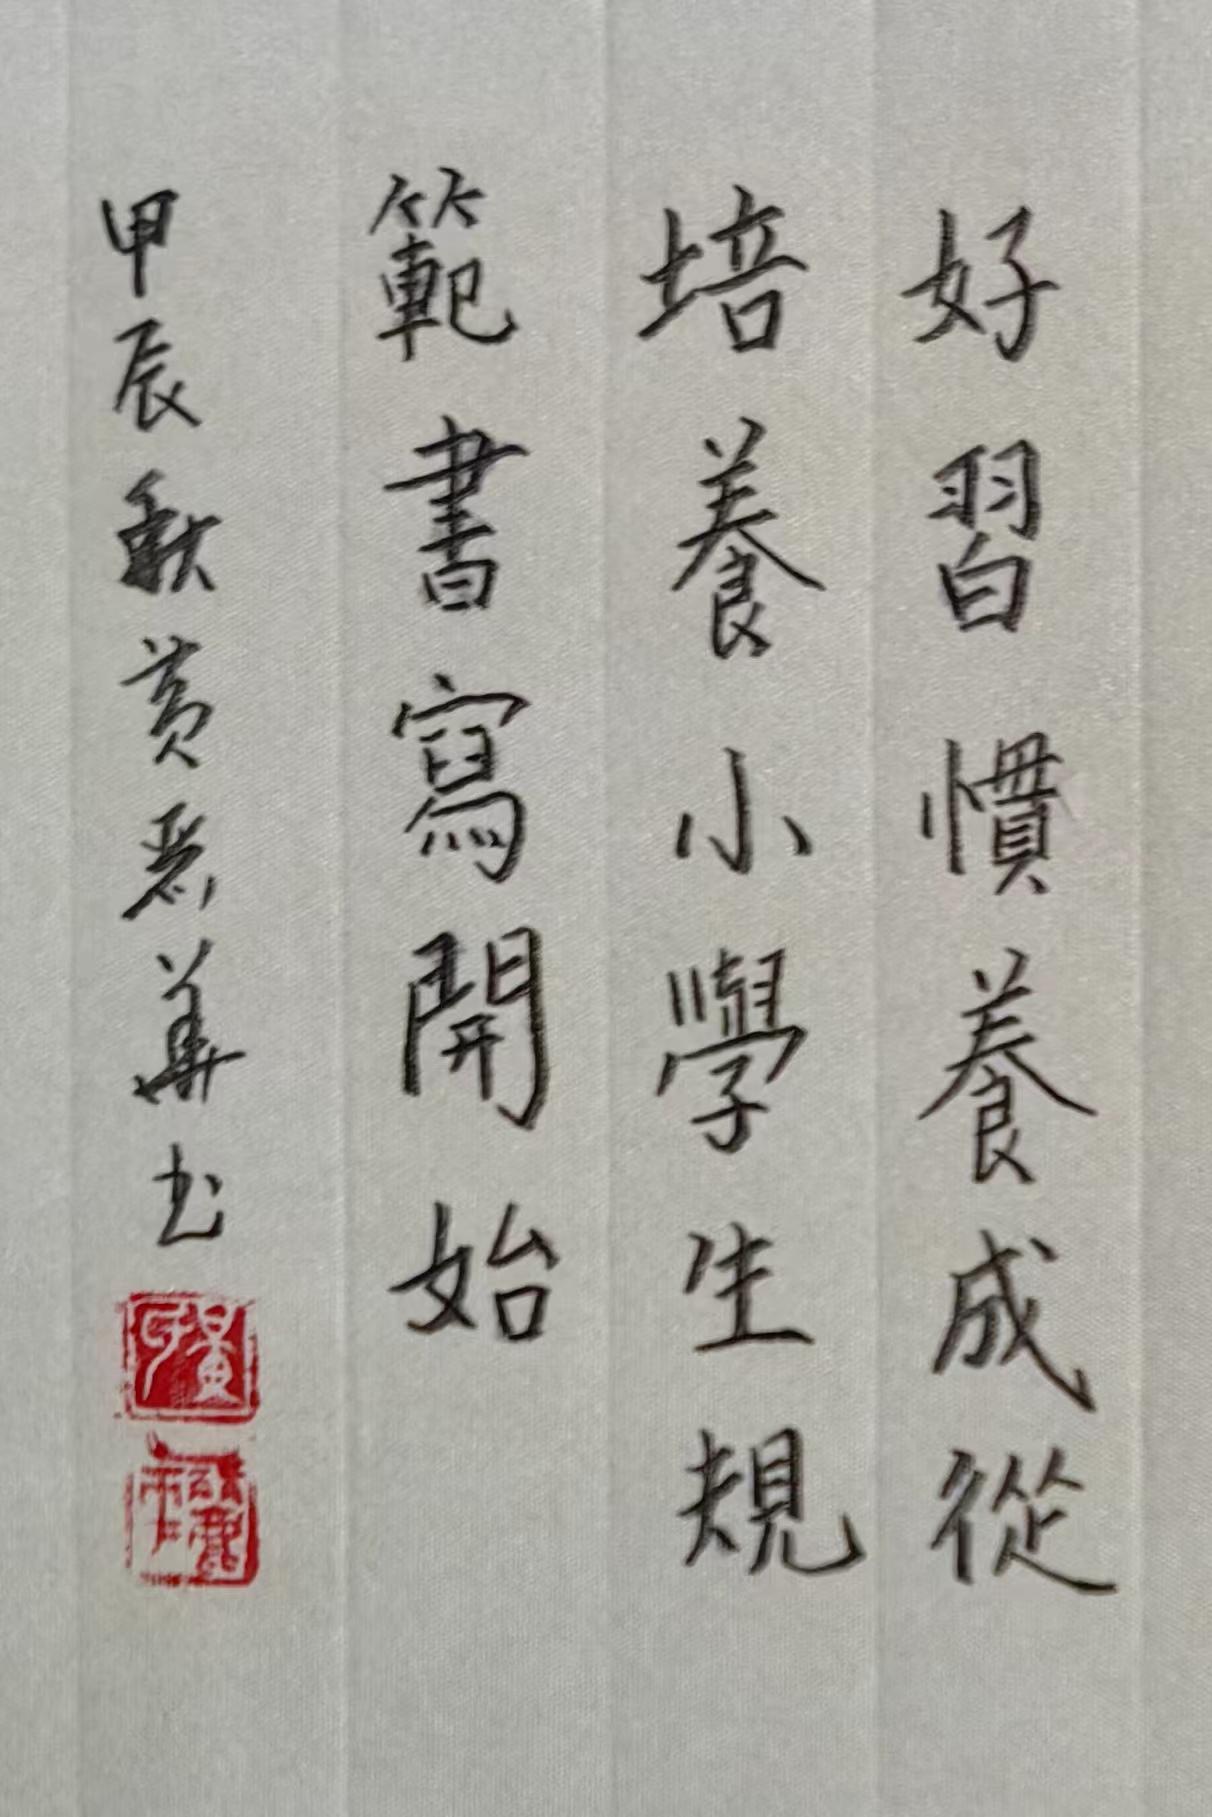 好習慣養成從
培養小學生規
範書寫開始
甲辰秋黃華书